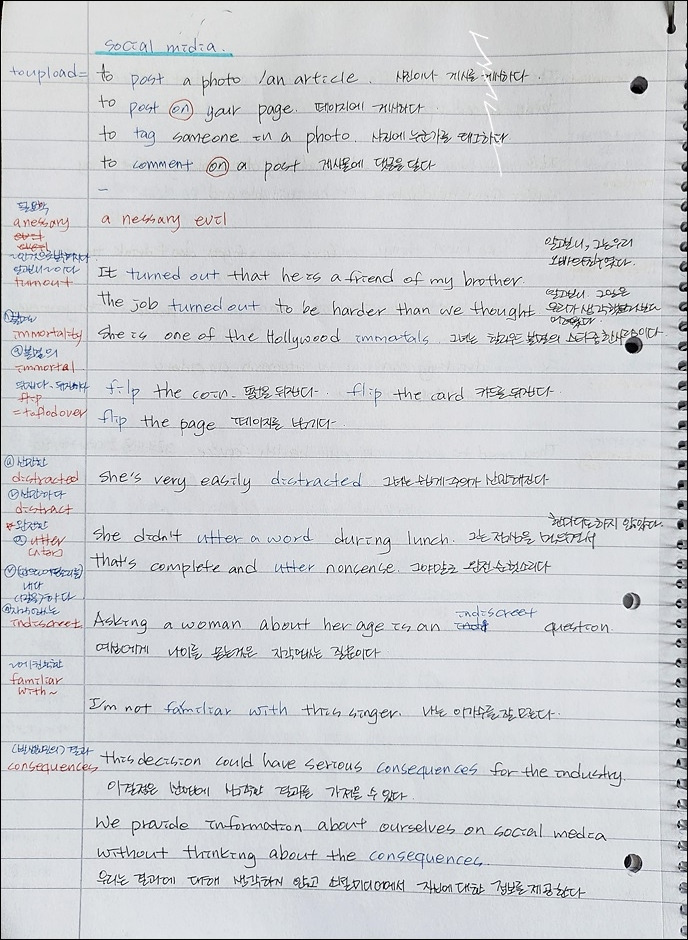 social media.
to upload = to post a photo / an article. 사진이나 게시를 게시하다.
to post on your page. 페이지에 게시하다.
to tag someone in a photo. 사진에 누군가를 태그하다
to comment on a post 게시물에 댓글을 달다
-
필요악
a nessary evil
a nessary
알고보니,
turnout
It turned out that he is a friend of my brother.
알고보니 그일은
the job turned out to be harder than we thought
immortality
she is one of the Hollywood immatals.
불멸의
immortal
flip
= to flod over
filp the coin. 동전을 뒤집다. flip the card 카드를 뒤집다.
flip the page 페이지를 넘기다.
산만한
distracted
she's very easily distracted 그녀는 쉽게 주의가 산만해진다
산만하다
distract
완전한
한마디도하지 않았다.
utter
she didn't utter a word during lunch. 그는 점심을 먹으면서
that's complete and utter nonsense. 그야말로 완전 헛소리다
indiscreet
indiscreet
Asking a woman about her age is an question.
여자에게 나이를 묻는것은 지각없는 질문이다
familiar
with~
I'm not familiar with this singer. 나는 이가수를 잘 모른다.
결과
consequences
this decision could have serious consequences for the industry.
이결정은 산업에 심각한 결과를 가져올 수 있다.
We provide information about ourselves on social media
without thinking about the consequences.
우리는 결과에 대해 생각하지 않고 소셜미디어에서 자신에 대한 정보를 제공한다